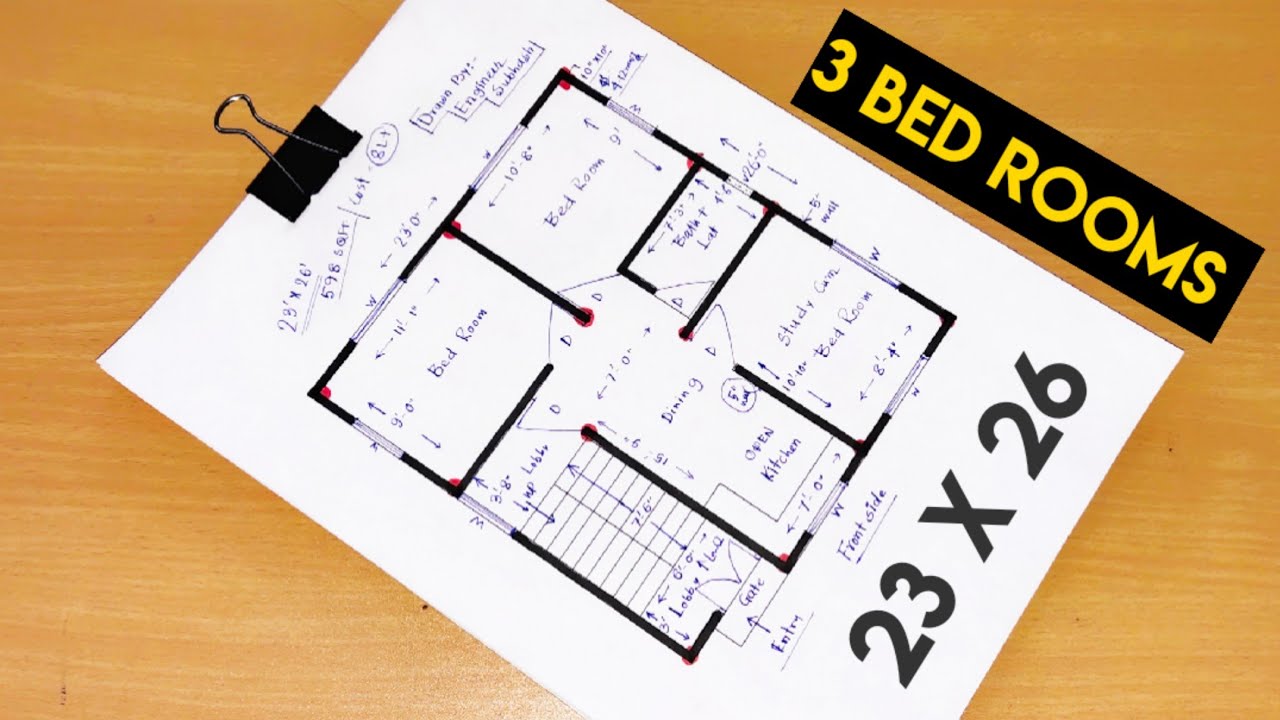 3 BED ROOMS
23 X 26
Drawn By:-
Engineer
Subhash
23' X 26'
598 SQFT / Cost - 8 Lt
10" X 10"
W
23'0"
W
26'-0"
5" wall
W
W
W
10'-8"
9'
Bed Room
7'-3"
4'6"
Bath +
Lat
D
D
D
D
11'-1"
Bed Room
9'-0"
Study Cum
Bed Room
10'10"
8'-4"
7'-0"
Dining
5" wall
OPEN
Kitchen
7'-0"
3'-8"
up Lobby
7'6"
6'-0"
3' Lobby
Gate
Entry
Front side